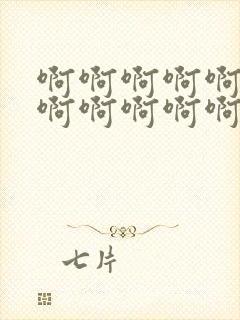 啊啊啊啊啊
啊啊啊啊啊
七片